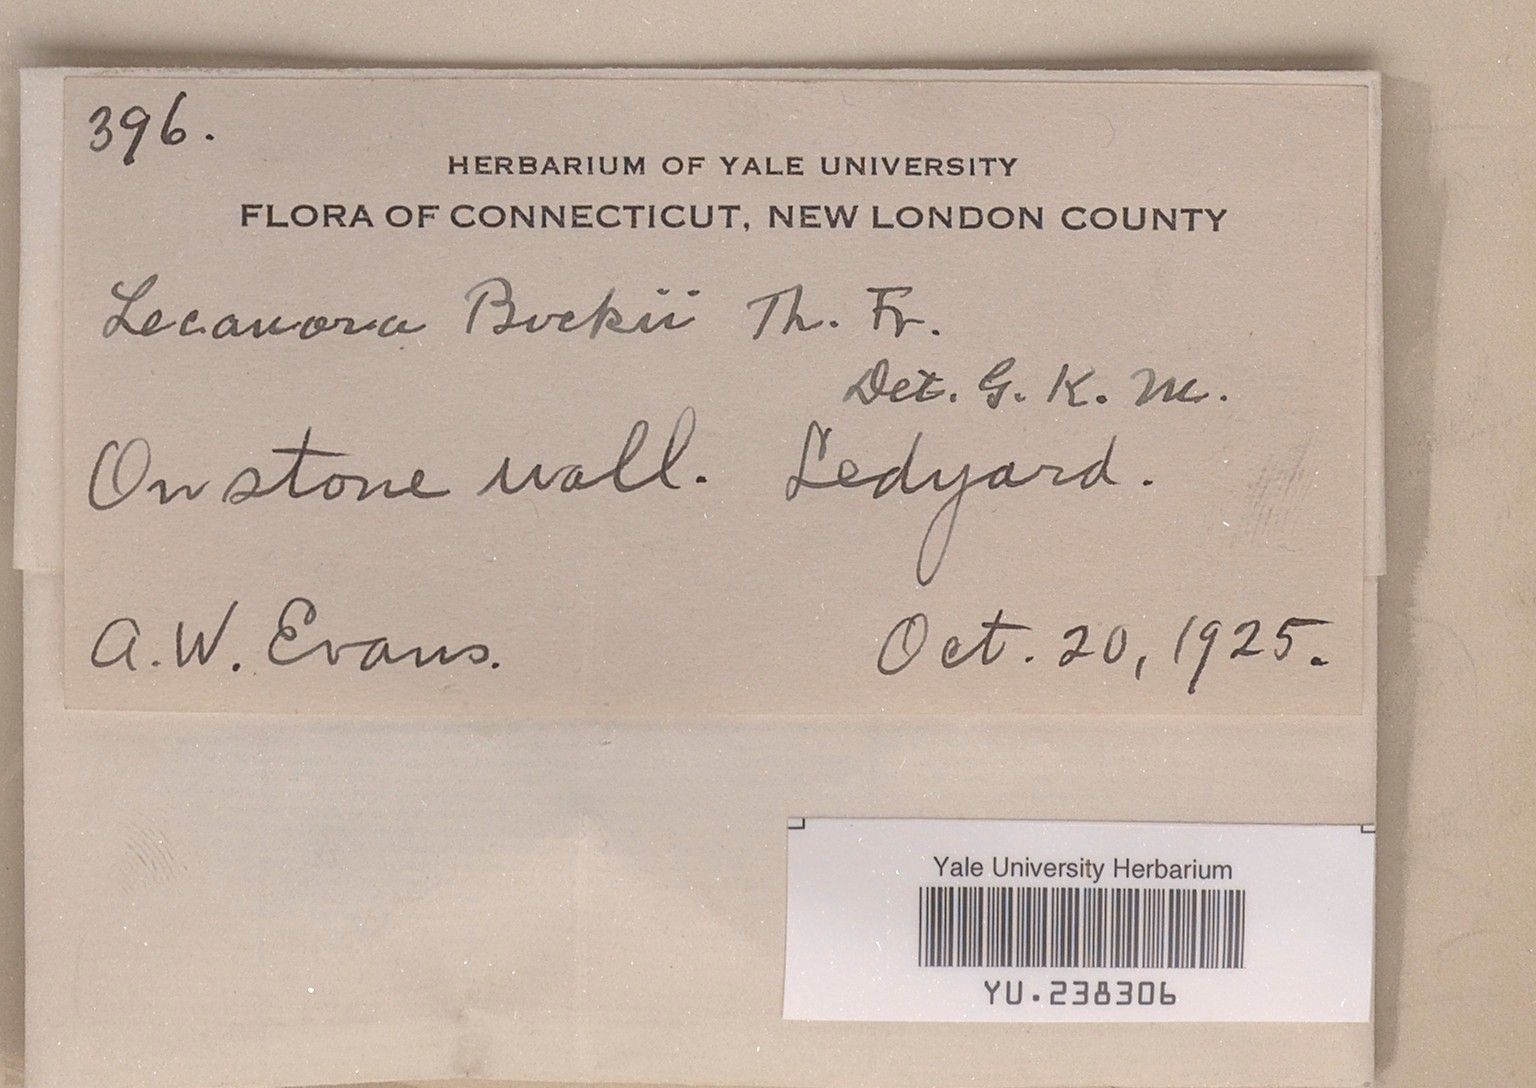 396.
HERBARIUM OF YALE UNIVERSITY
FLORA OF CONNECTICUT, NEW LONDON COUNTY
Lecanora Bockii Th. Fr.
Det. G. K. M.
On stone wall. Ledyard.
A. W. Evans. Oct. 20, 1925.
Yale University Herbarium
YU.238306